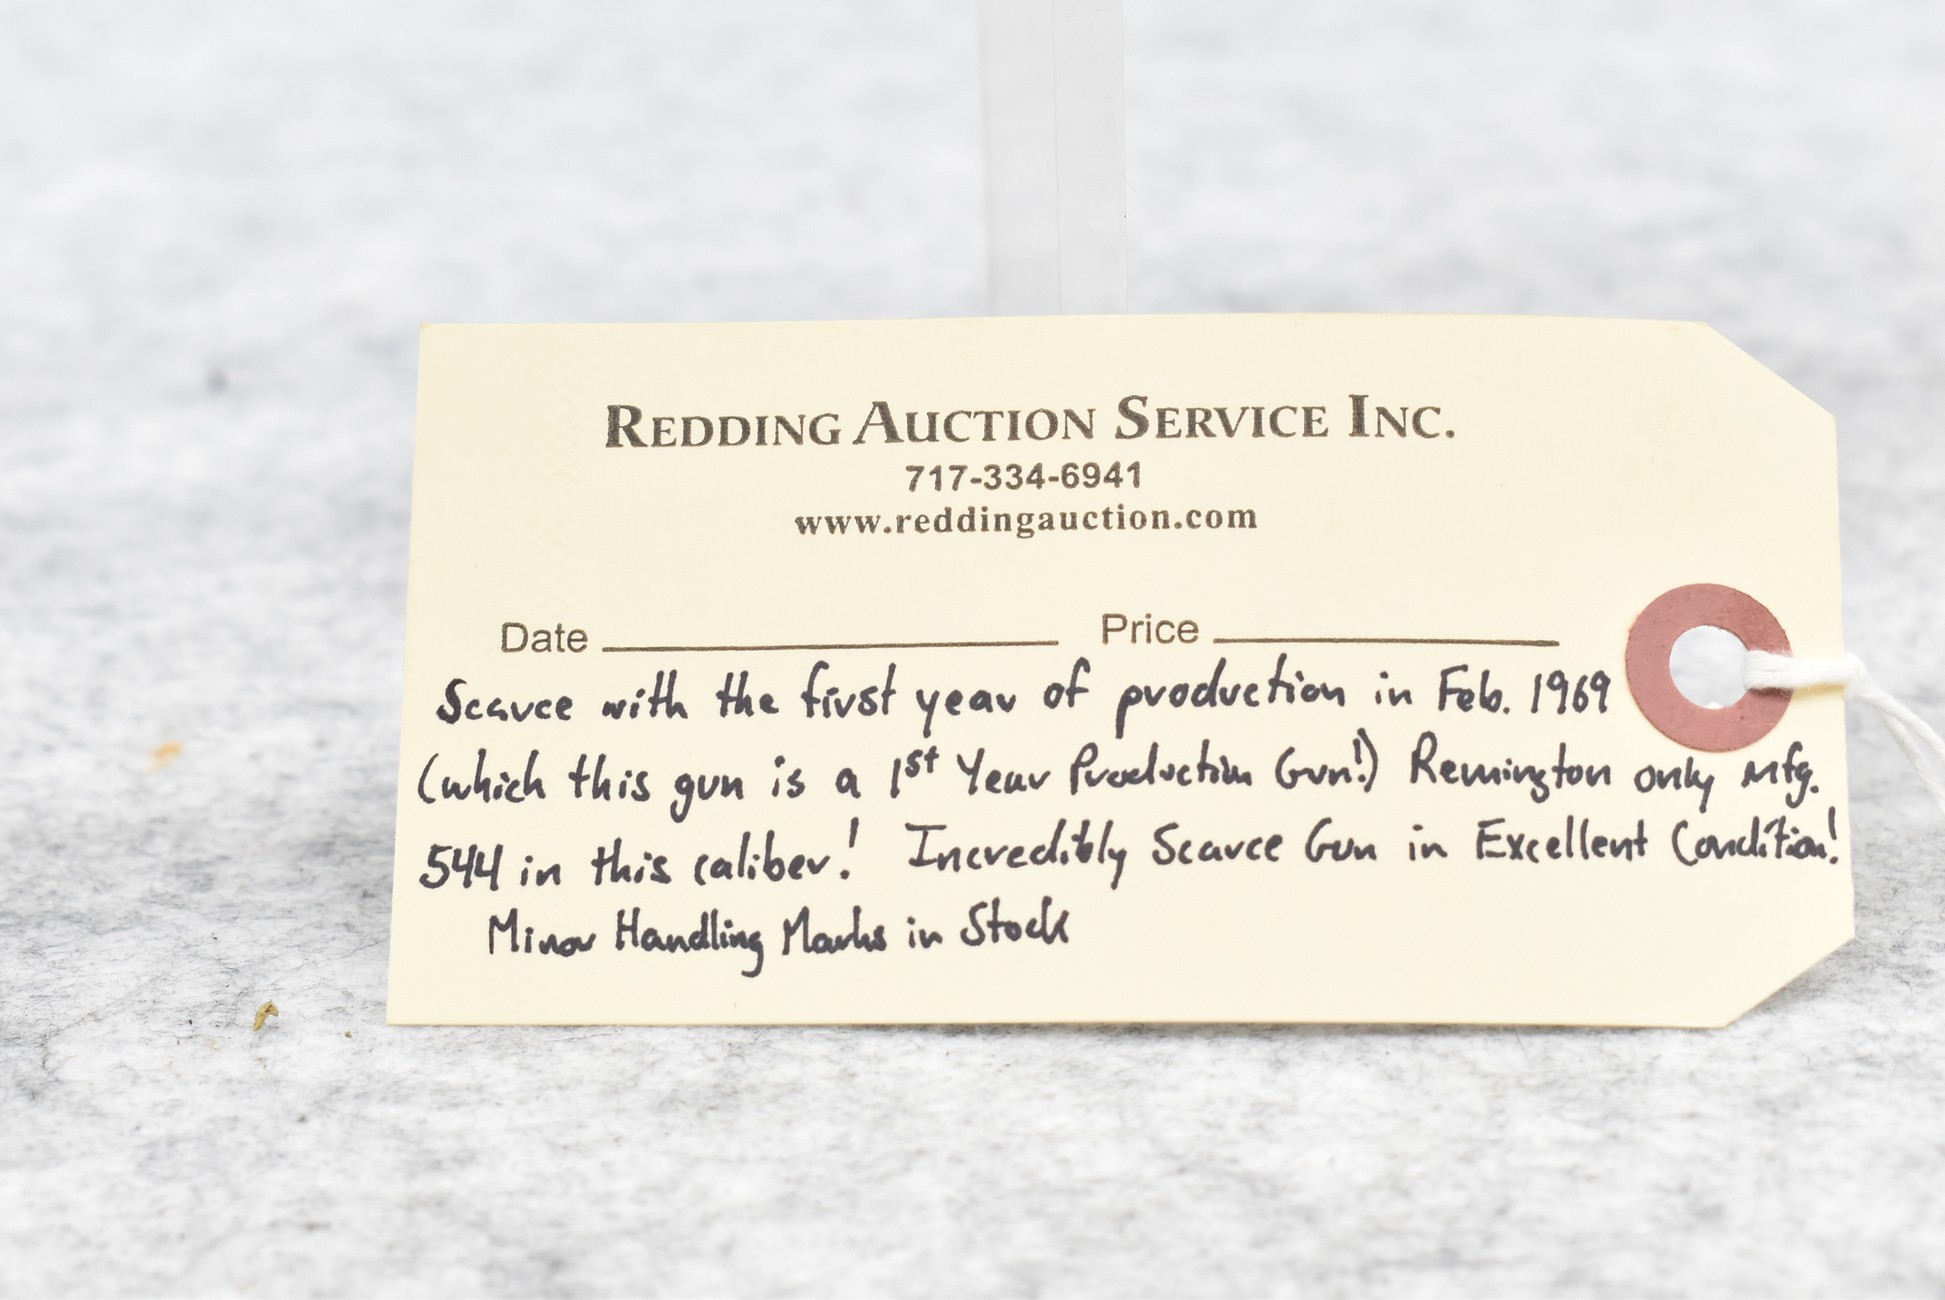 REDDING AUCTION SERVICE INC.
717-334-6941
www.reddingauction.com
Date Price
Scarce with the first year of production in Feb. 1969
(which this gun is a 1st Year Production Gun!) Remington only mfg.
544 in this caliber! Incredibly Scarce Gun in Excellent Condition!
Minor Handling Marks in Stock